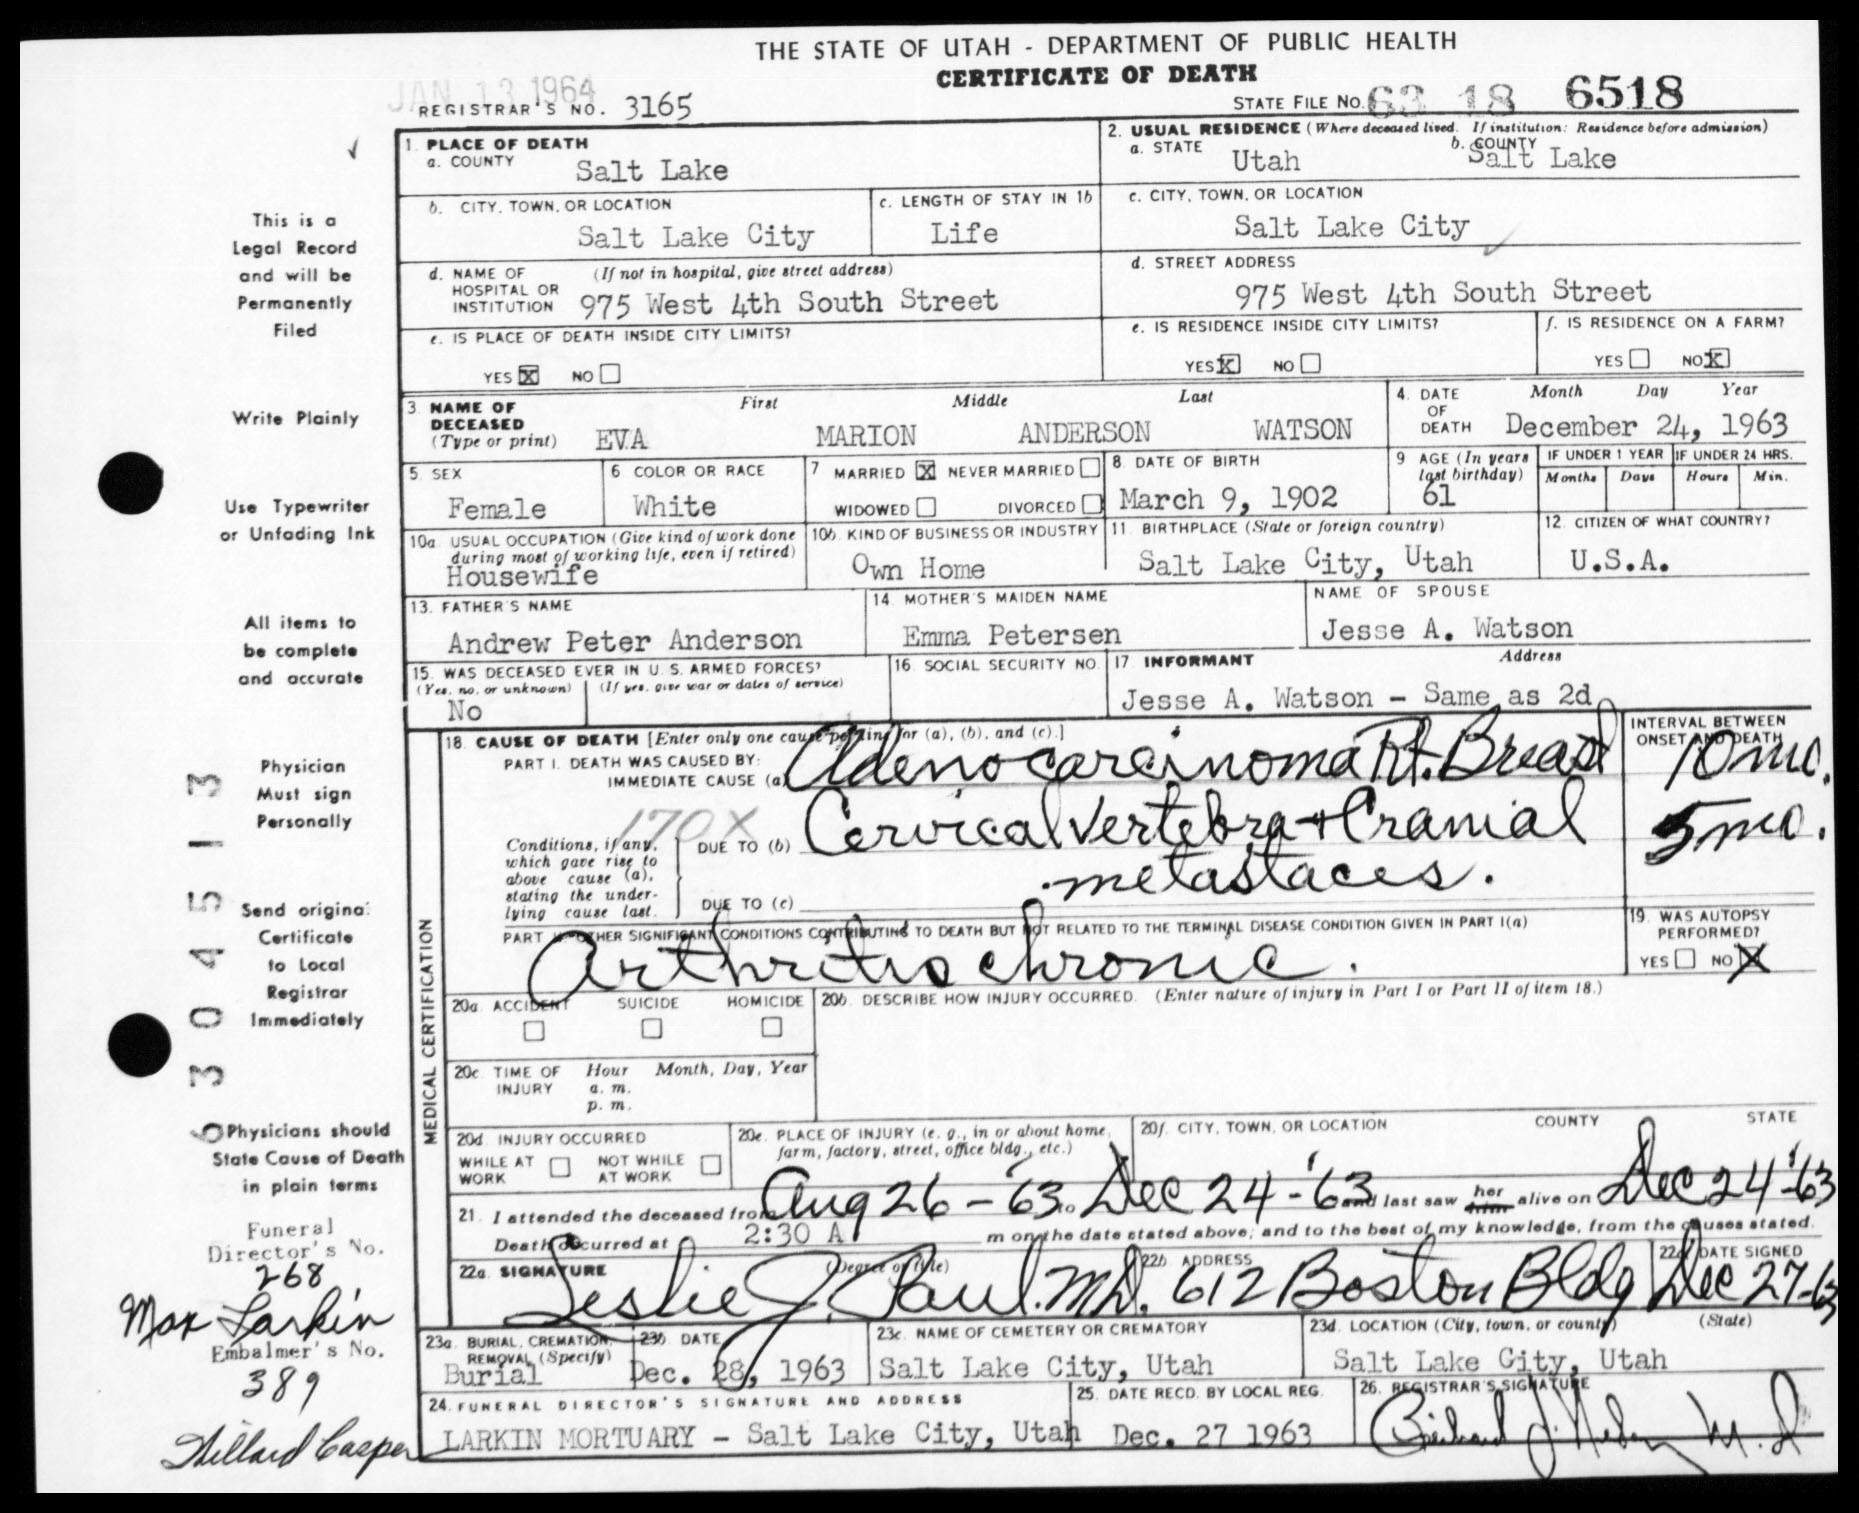 THE STATE OF UTAH - DEPARTMENT OF PUBLIC HEALTH
CERTIFICATE OF DEATH
JAN 13 1964
REGISTRAR'S NO. 3165
STATE FILE NO. 63 18 6518
1. PLACE OF DEATH
a. COUNTY
Salt Lake
2. USUAL RESIDENCE (Where deceased lived. If institution: Residence before admission)
a. STATE Utah
b. COUNTY Salt Lake
b. CITY, TOWN, OR LOCATION
Salt Lake City
c. LENGTH OF STAY IN 1b
Life
c. CITY, TOWN, OR LOCATION
Salt Lake City
d. NAME OF HOSPITAL OR INSTITUTION (If not in hospital, give street address)
975 West 4th South Street
d. STREET ADDRESS
975 West 4th South Street
e. IS PLACE OF DEATH INSIDE CITY LIMITS?
YES X NO
e. IS RESIDENCE INSIDE CITY LIMITS?
YES X NO
f. IS RESIDENCE ON A FARM?
YES NO X
3. NAME OF DECEASED (Type or print)
First Middle Last
EVA MARION ANDERSON WATSON
4. DATE OF DEATH
Month Day Year
December 24, 1963
5. SEX
Female
6 COLOR OR RACE
White
7 MARRIED X NEVER MARRIED
WIDOWED DIVORCED
8. DATE OF BIRTH
March 9, 1902
9 AGE (In years last birthday)
61
IF UNDER 1 YEAR
Months Days
IF UNDER 24 HRS.
Hours Min.
10a. USUAL OCCUPATION (Give kind of work done during most of working life, even if retired)
Housewife
10b. KIND OF BUSINESS OR INDUSTRY
Own Home
11. BIRTHPLACE (State or foreign country)
Salt Lake City, Utah
12. CITIZEN OF WHAT COUNTRY?
U.S.A.
13. FATHER'S NAME
Andrew Peter Anderson
14. MOTHER'S MAIDEN NAME
Emma Petersen
NAME OF SPOUSE
Jesse A. Watson
15. WAS DECEASED EVER IN U. S. ARMED FORCES?
(Yes, no, or unknown) (If yes, give war or dates of service)
No
16. SOCIAL SECURITY NO.
17. INFORMANT Address
Jesse A. Watson - Same as 2d
MEDICAL CERTIFICATION
18. CAUSE OF DEATH [Enter only one cause per line for (a), (b), and (c).]
INTERVAL BETWEEN ONSET AND DEATH
PART I. DEATH WAS CAUSED BY:
IMMEDIATE CAUSE (a) Adenocarcinoma Rt. Breast 10 mo.
170X
Conditions, if any, which gave rise to above cause (a), stating the underlying cause last.
DUE TO (b) Cervical Vertebra + Cranial 5 mo.
metastaces.
DUE TO (c)
PART II. OTHER SIGNIFICANT CONDITIONS CONTRIBUTING TO DEATH BUT NOT RELATED TO THE TERMINAL DISEASE CONDITION GIVEN IN PART I(a)
Arthritis chronic.
19. WAS AUTOPSY PERFORMED?
YES NO X
20a. ACCIDENT SUICIDE HOMICIDE
20b. DESCRIBE HOW INJURY OCCURRED. (Enter nature of injury in Part I or Part II of item 18.)
20c. TIME OF INJURY Hour Month, Day, Year
a. m.
p. m.
20d. INJURY OCCURRED
WHILE AT WORK NOT WHILE AT WORK
20e. PLACE OF INJURY (e. g., in or about home, farm, factory, street, office bldg., etc.)
20f. CITY, TOWN, OR LOCATION COUNTY STATE
21. I attended the deceased from Aug 26 - '63 to Dec 24 - '63 and last saw her him alive on Dec 24 '63
Death occurred at 2:30 A m on the date stated above; and to the best of my knowledge, from the causes stated.
22a. SIGNATURE (Degree or title)
Leslie J. Paul. M.D.
22b. ADDRESS
612 Boston Bldg
22c. DATE SIGNED
Dec 27-63
23a. BURIAL, CREMATION, REMOVAL (Specify)
Burial
23b. DATE
Dec. 28, 1963
23c. NAME OF CEMETERY OR CREMATORY
Salt Lake City, Utah
23d. LOCATION (City, town, or county) (State)
Salt Lake City, Utah
24. FUNERAL DIRECTOR'S SIGNATURE AND ADDRESS
LARKIN MORTUARY - Salt Lake City, Utah
25. DATE RECD. BY LOCAL REG.
Dec. 27 1963
26. REGISTRAR'S SIGNATURE
This is a
Legal Record
and will be
Permanently
Filed
Write Plainly
Use Typewriter
or Unfading Ink
All items to
be complete
and accurate
Physician
Must sign
Personally
Send original
Certificate
to Local
Registrar
Immediately
Physicians should
State Cause of Death
in plain terms
Funeral
Director's No.
268
Max Larkin
Embalmer's No.
389
Willard Casper
6304513